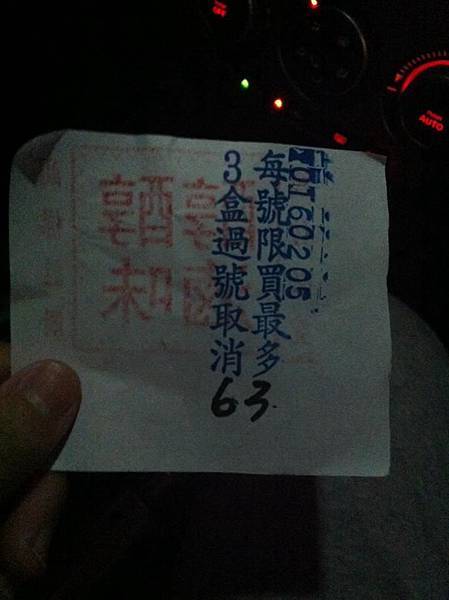 20160205
每號限買最多
3盒過號取消
63.
AUTO
OFF